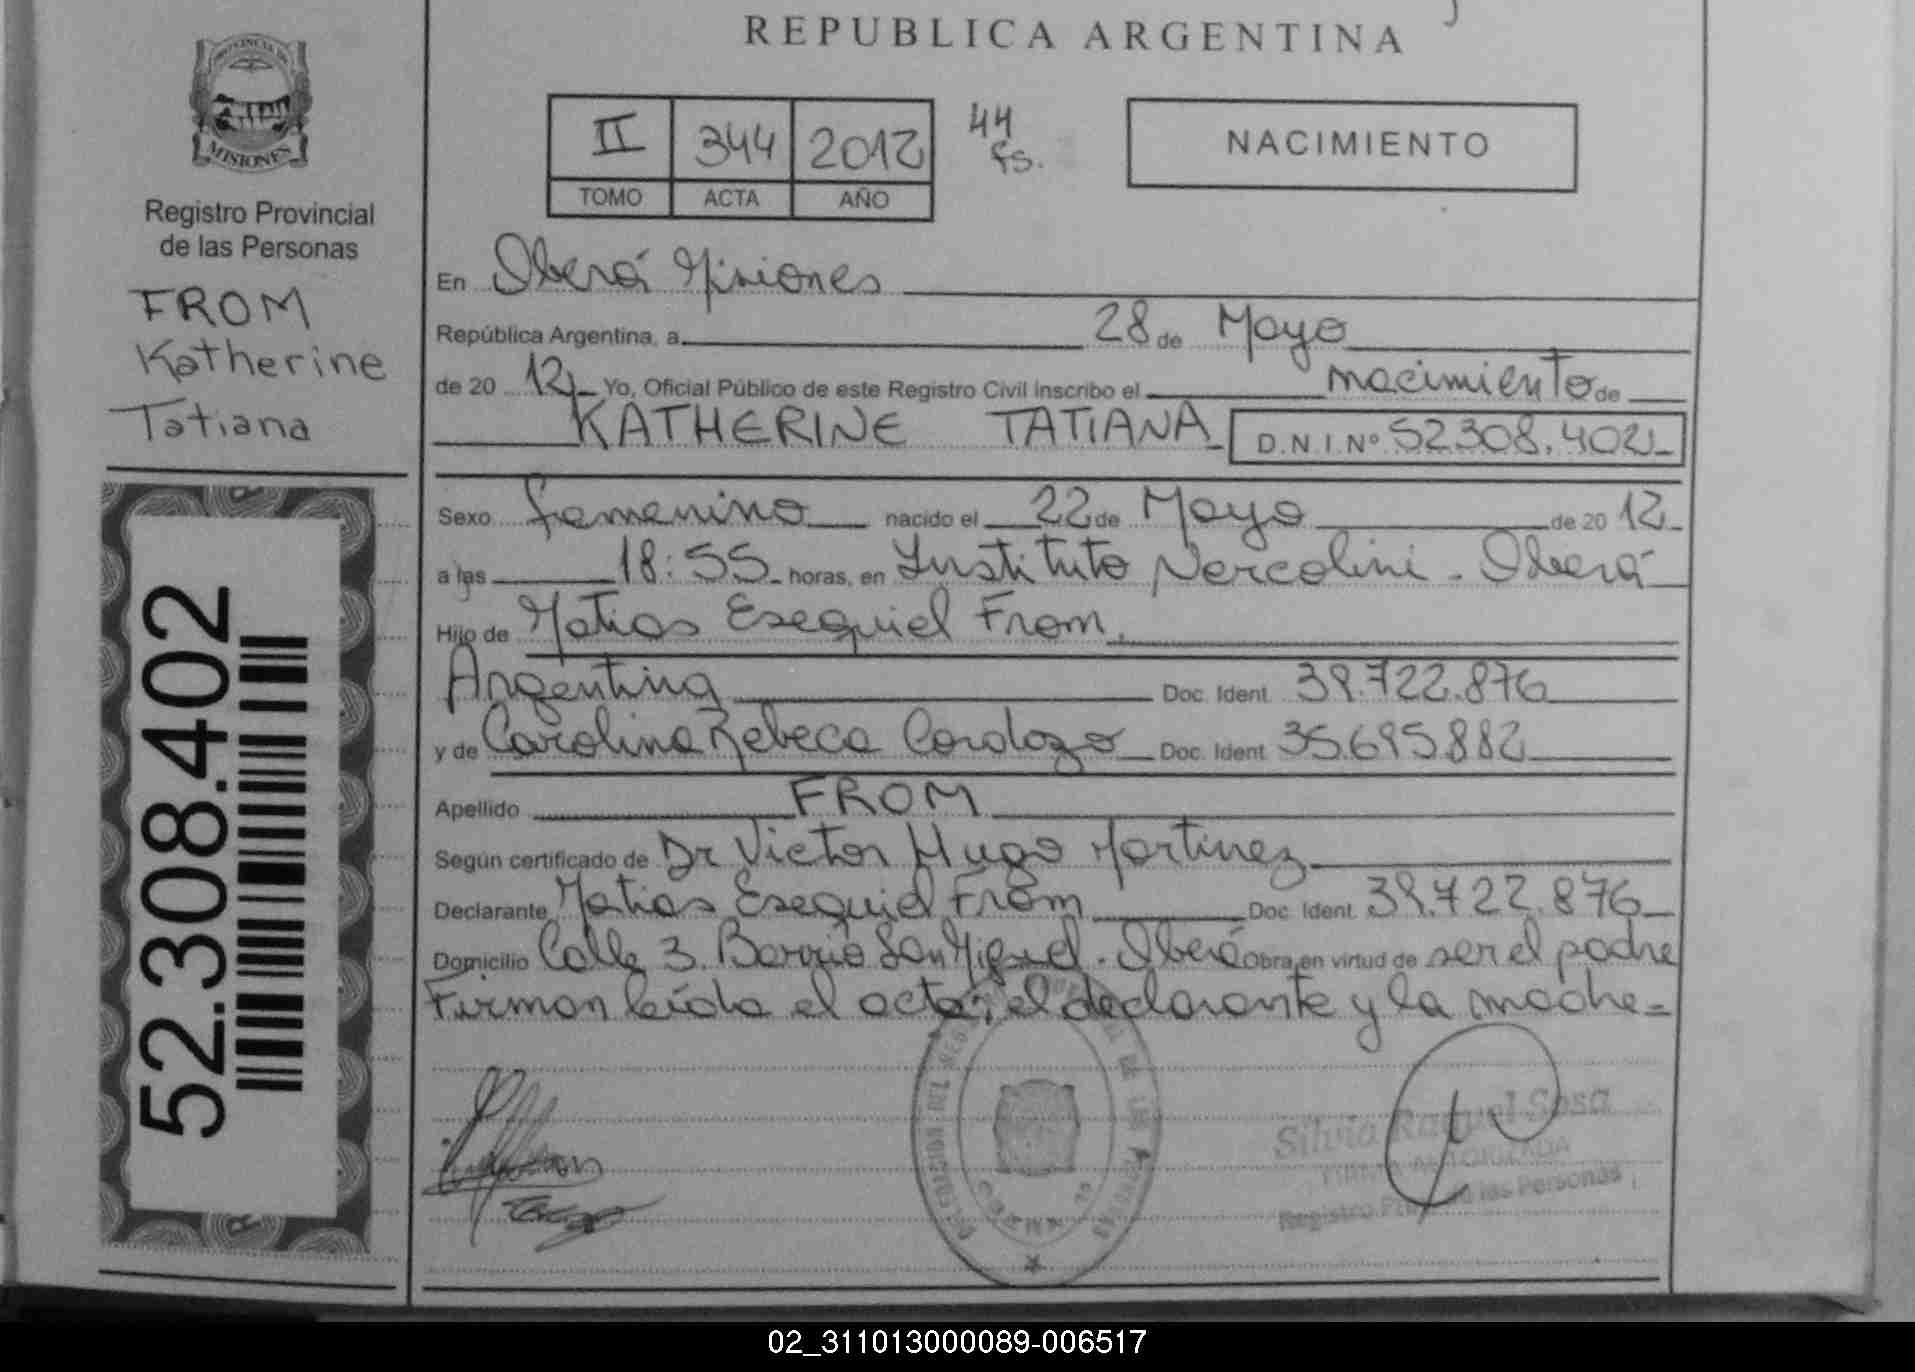 REPUBLICA ARGENTINA
PROVINCIA DE
MISIONES
Registro Provincial
de las Personas
FROM
Katherine
Tatiana
52.308.402
II 344 2012
TOMO ACTA AÑO
44
fs.
NACIMIENTO
En Oberá Misiones
República Argentina, a 28 de Mayo
de 20 12 Yo, Oficial Público de este Registro Civil Inscribo el nacimiento de
KATHERINE TATIANA D.N.I.Nº 52.308.402
Sexo Femenino nacido el 22 de Mayo de 20 12
a las 18:55 horas, en Instituto Nercolini - Oberá
Hijo de Matias Esequiel From,
Argentina Doc. Ident. 39.722.876
y de Carolina Rebeca Cardozo Doc. Ident. 35.695.882
Apellido FROM
Según certificado de Dr Victor Hugo Martinez
Declarante Matias Esequiel From Doc. Ident. 39.722.876
Domicilio Calle 3. Barrio San Miguel. Oberá Obra en virtud de ser el padre
Firman leída el acta; el declarante y la madre=
Silvia Raquel Sosa
FIRMA AUTORIZADA
Registro Prov. de las Personas
02_311013000089-006517